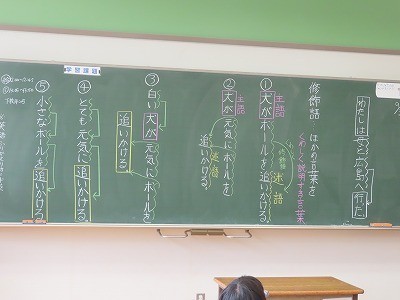 わたしは母と広島へ行った
修飾語 ほかの言葉を
くわしく説明する言葉
主語
① 犬がボールを追いかける。
修飾語
述語
主語
② 犬が元気にボールを
追いかける。
述語
③ 白い犬が元気にボールを
追いかける
学習課題
④ とても元気に追いかける
⑤ 小さなボールを追いかける